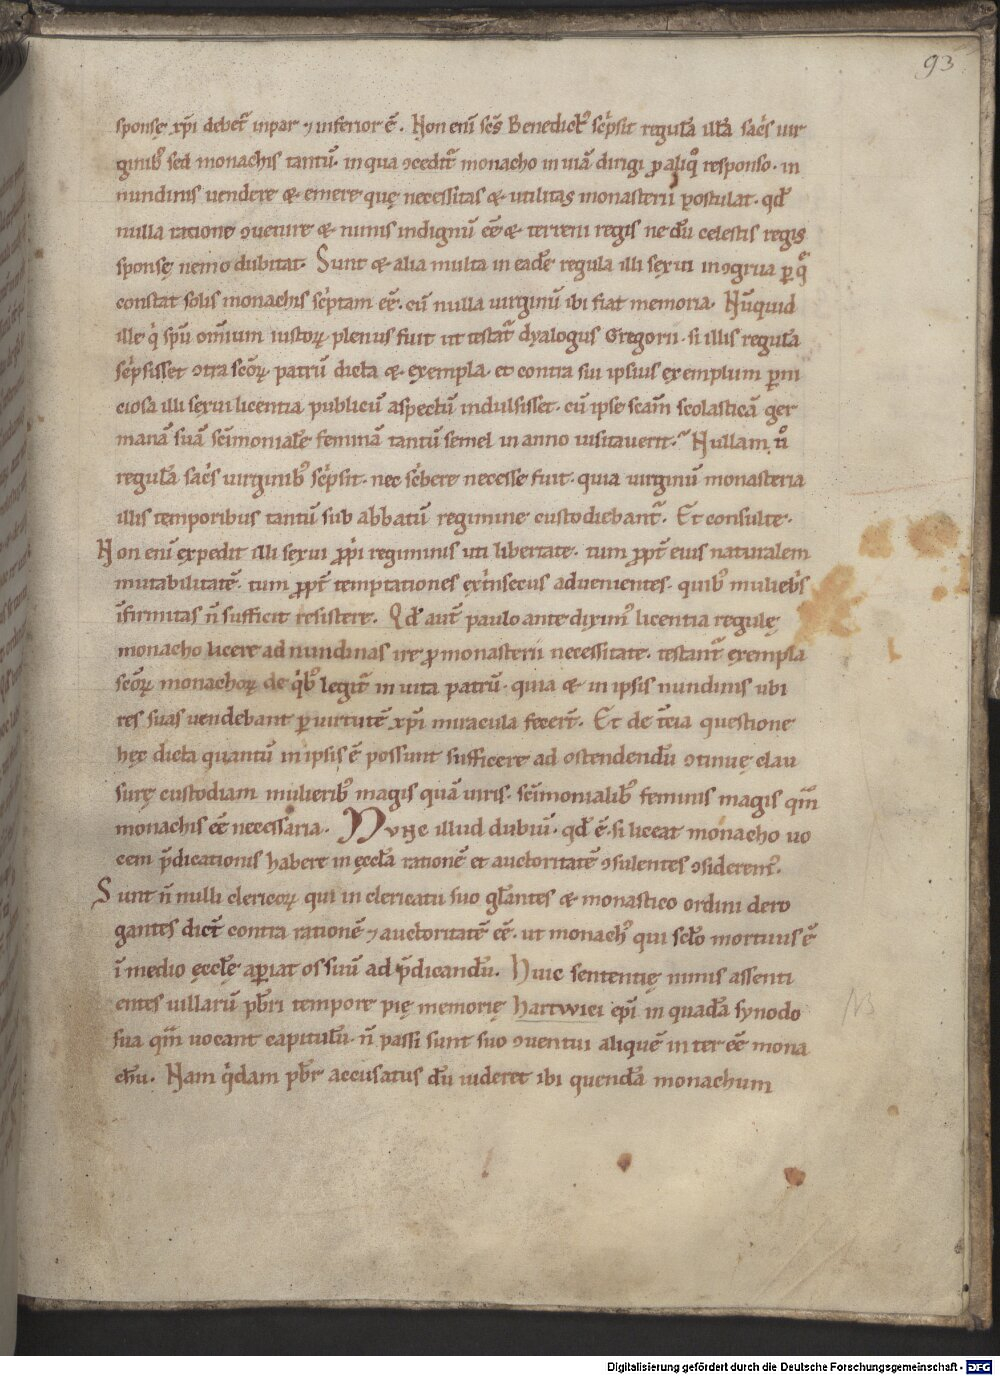 93
sponsę xp̄i debet᷑ inpar ⁊ inferior ē. Non eni̅ sc̅s Benedict᷒ sc͛psit regul̅a ill̅a sac͛s uir
ginib᷒ sed monachis tantu̅. in qua ꝯcedit᷑ monacho in uia̅ dirigi ꝓ aliq̊ responso. in
nundinis uendere & emere quę necessitas & utilitas monasterii postulat. qd̅
nulla ratione ꝯueture & nimis indignu̅ ēe & terreni regis nedu̅ celestis regis
sponsę nemo dubitat. Sunt & alia multa in ead̅e regula illi sexui inꝯgrua ꝑ q̨
constat solis monachis sc͛ptam ēe. cu̅ nulla uirginu̅ ibi fiat memoria. Nu̅quid
ille q͛ sp̅u om̅ium iustoꝝ plenus fuit ut testat᷑ dyalogus Gregorii. si illis regul̅a
sc͛psisset ꝯtra sc̅oꝝ patru̅ dicta & exempla. et contra sui ipsius exemplum ꝑni
ciosa illi sexui licentia publicu̅ aspectu̅ indulsisset. cu̅ ipse sc̅am scolastica̅ ger
mana̅ sua̅ sc̅imonial̅e femina̅ tantu̅ semel in anno uisitauerit. Nullam u̅o
regul̅a sac͛s uirginib᷒ sc͛psit. nec sc͛bere necesse fuit. quia uirginu̅ monasteria
illis temporibus tantu̅ sub abbatu̅ regimine custodiebant᷑. Et consulte.
Non eni̅ expedit illi sexui ꝓp͛i regiminis uti libertate. tum ꝓpt̅ eius naturalem
mutabilitate̅. tum ꝓpt̅ temptationes ext͛nsecus aduenientes. quib᷒ mulieb͛s
i̅firmitas n̅ sufficit resistere. Qd̅ aut̅ paulo ante dixim᷒ licentia regulę
monacho licere ad nundinas ire ꝓ monasterii necessitate. testant᷑ exempla
sc̅oꝝ monachoꝝ de q͛b᷒ legit᷑ in uita patru̅. quia & in ipsis nundinis ubi
res suas uendebant ꝑ uirtute̅ xp̄i miracula fecer̅t. Et de t̅cia questione
hęc dicta quantu̅ in ipsis ē possunt sufficere ad ostendendu̅ ꝯtinuę clau
surę custodiam mulierib᷒ magis qua̅ uiris. sc̅imonialib᷒ feminis magis qm̅
monachis ēe necessaria. Nunc illud dubiu̅. qd̅ ē. si liceat monacho uo
cem p̅dicationis habere in ęccl̅a ratione̅ et auctoritate̅ ꝯsulentes ꝯsiderem᷒.
Sunt n̅ nulli clericoꝝ qui in clericatu suo gl̅antes & monastico ordini dero
gantes dic̅t contra ratione̅ ⁊ auctoritate̅ ēe. ut monach᷒ qui sc̅lo mortuus ē
i̅ medio ęccl̅ę aꝑiat os suu̅ ad p̅dicandu̅. Huic sententię nimis assenti
entes uillaru̅ pb̅ri tempore pię memorię hartwici ep̅i in quad̅a synodo
sua qm̅ uocant capitulu̅. n̅ passi sunt suo ꝯuentui alique̅ inter ēe mona
chu̅. Nam q͛dam pb̅r accusatus du̅ uideret ibi quend̅a monachum
NB
Digitalisierung gefördert durch die Deutsche Forschungsgemeinschaft - DFG